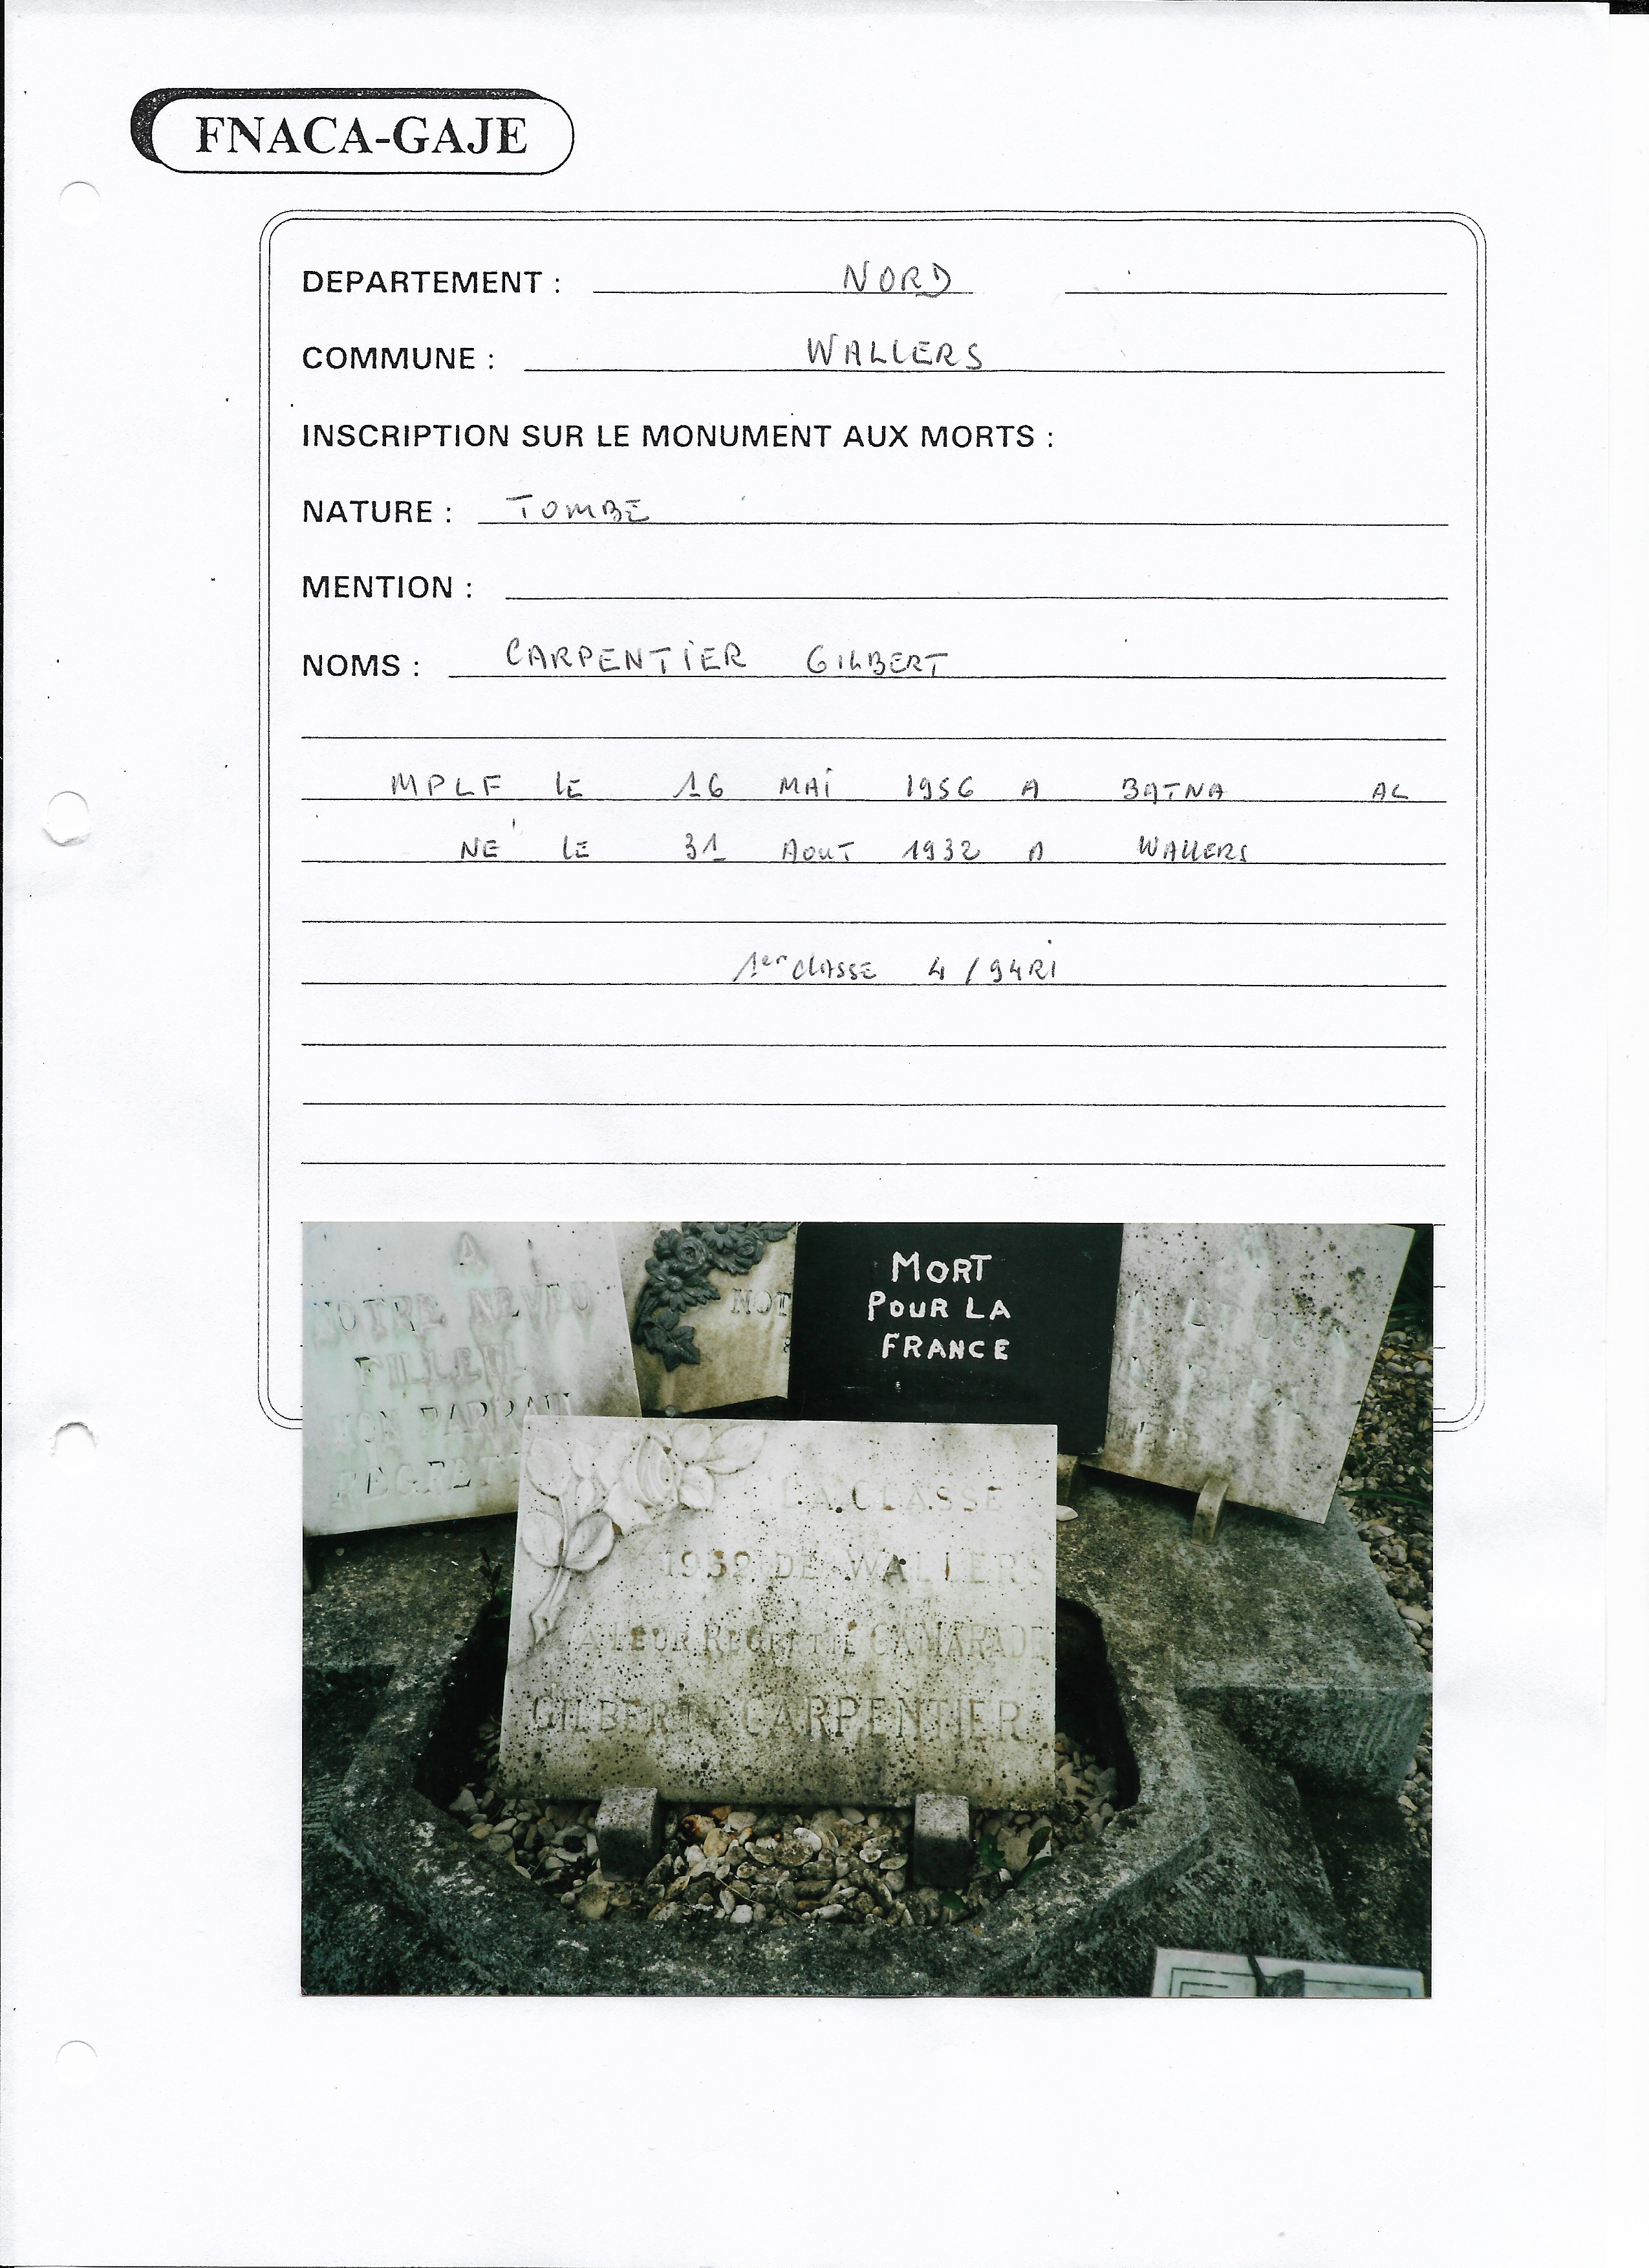 FNACA-GAJE
DEPARTEMENT : NORD
COMMUNE : WALLERS
INSCRIPTION SUR LE MONUMENT AUX MORTS :
NATURE : TOMBE
MENTION :
NOMS : CARPENTIER GILBERT
MPLF LE 16 MAI 1956 A BATNA AL
NÉ LE 31 AOUT 1932 A WALLERS
1er CLASSE 4 / 94RI
A
NOTRE NEVEU
FILLEUL
MON PARRAIN
REGRET
NOT
MORT
POUR LA
FRANCE
LA CLASSE
1952 DE WALLERS
A LEUR REGRETTÉ CAMARADE
GILBERT CARPENTIER